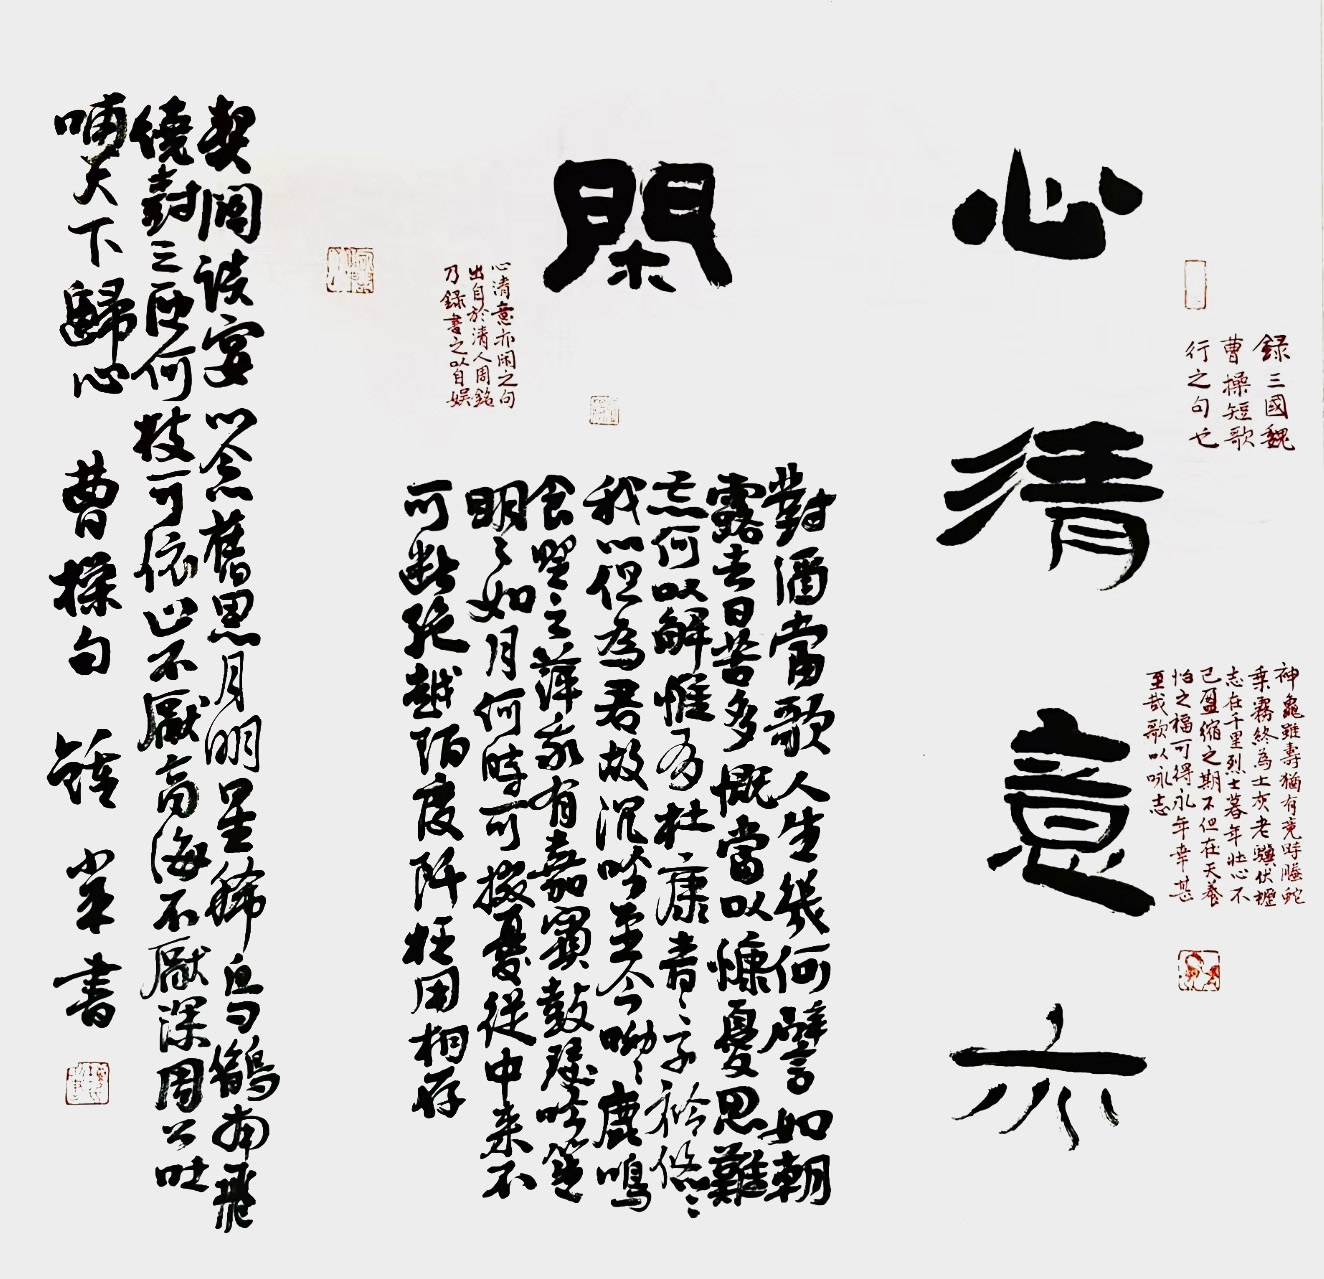 錄三國魏
曹操短歌
行之句也
神龜雖壽猶有竟時騰蛇
乘霧終為土灰老驥伏櫪
志在千里烈士暮年壯心不
已盈縮之期不但在天養
怡之福可得永年幸甚
至哉歌以咏志
心清意亦
閑
對酒當歌人生幾何譬如朝
露去日苦多慨當以慷憂思難
忘何以解惟有杜康青々子衿悠々
我心但為君故沉吟至今呦々鹿鳴
食野之萍我有嘉賓鼓瑟吹笙
明々如月何時可掇憂從中來不
可斷絕越陌度阡枉用相存
心清意亦閑之句
出自於清人周銘
乃錄書之以自娛
契闊談宴心念舊恩月明星稀烏鵲南飛
繞樹三匝何枝可依山不厭高海不厭深周公吐
哺天下歸心 曹操句 鍾業書